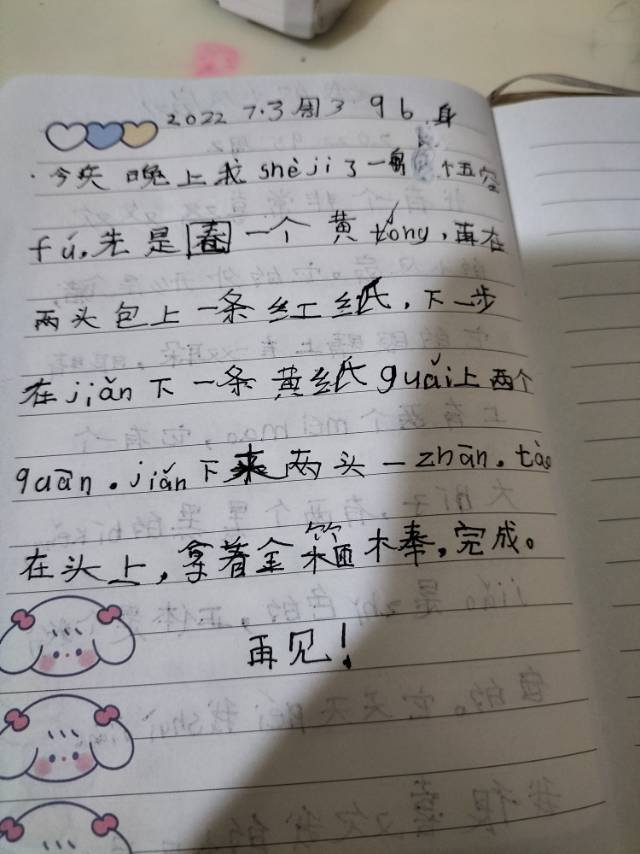 2022 7.3 周3 9 6 身
·今天晚上我 shèjì 了一身 悟空
fú,先是春一个黄 tǒng,再在
两头包上一条红纸,下一步
在 jiǎn 下一条黄纸 guǎi上两个
quān。jiǎn 下来两头一zhān。tào
在头上,拿着金箍木奉,完成。
再见!